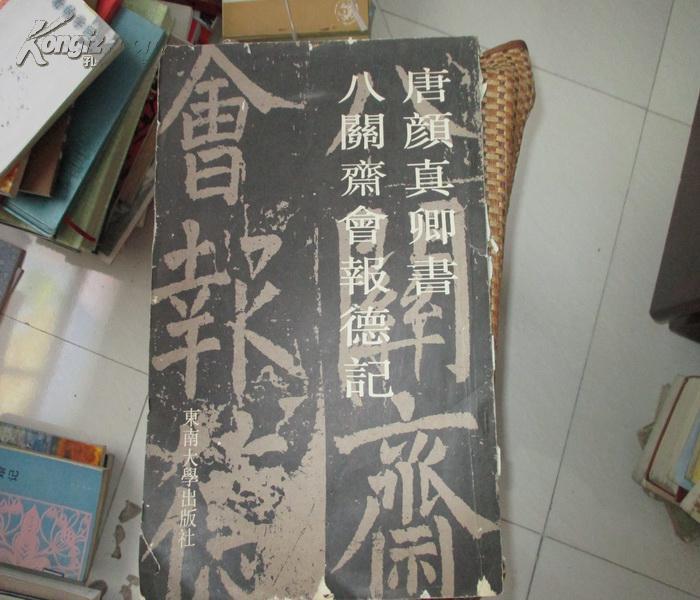 唐顔真卿書
八關齋會報德記
八關齋
會報德
東南大學出版社
Kongfz
孔